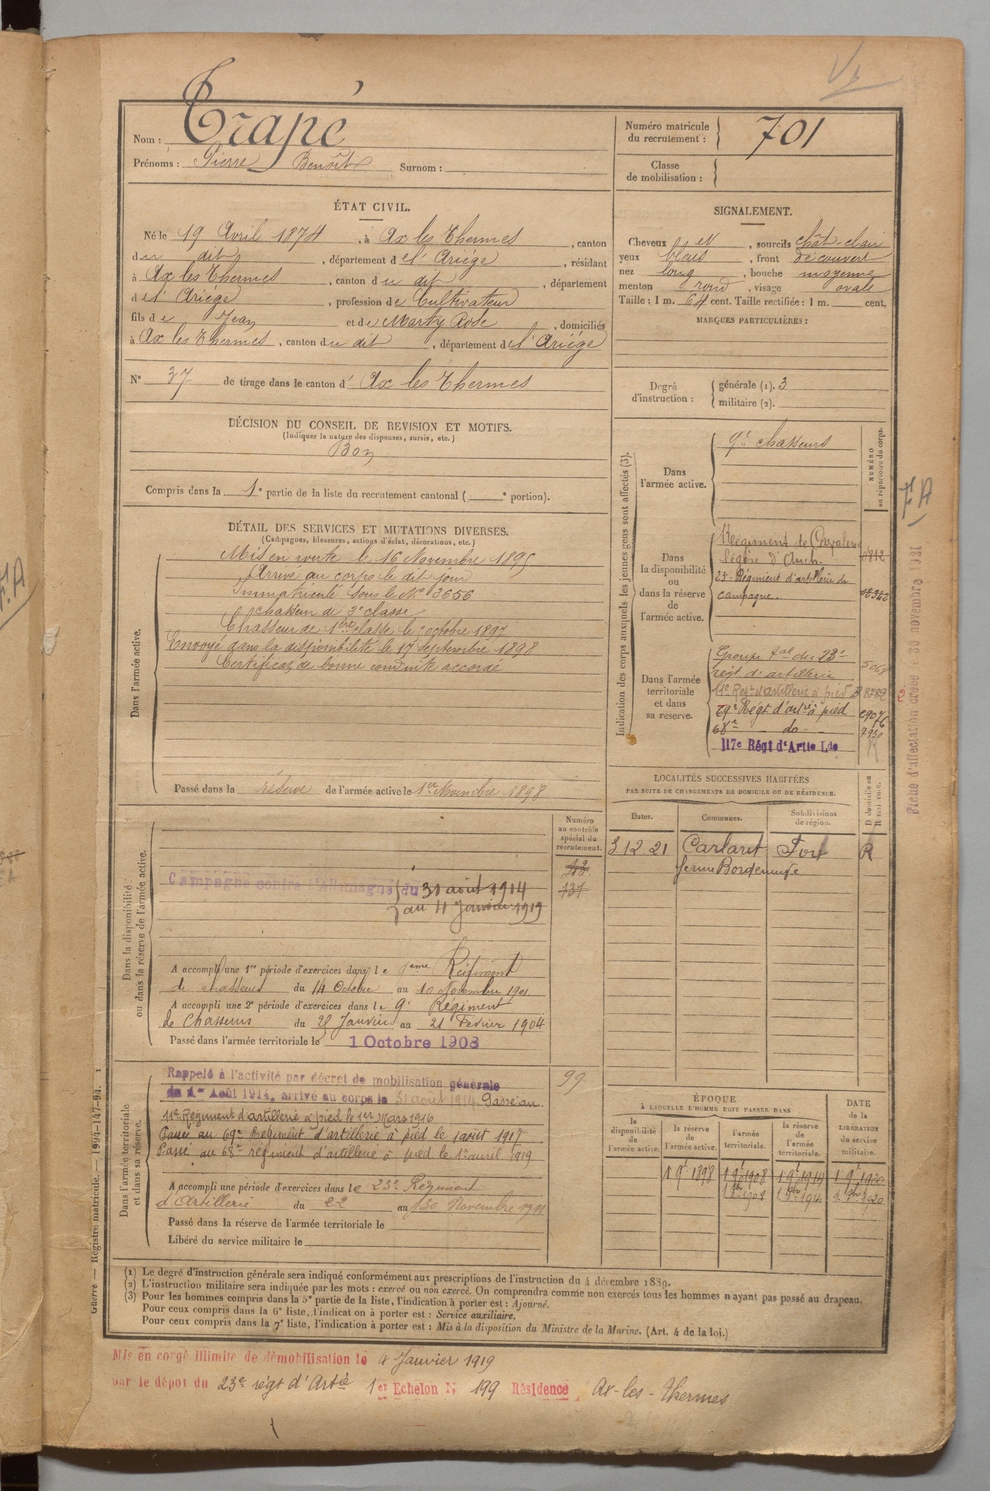 Nom : Trapé
Prénoms : Pierre Benoît Surnom :
Numéro matricule du recrutement : 701
Classe de mobilisation :
ÉTAT CIVIL.
Né le 19 Avril 1874, à Ax les Thermes, canton
du dit, département de l'Ariège, résidant
à Ax les Thermes, canton du dit, département
de l'Ariège, profession de Cultivateur
fils de Jean et de Marty Rose, domiciliés
à Ax les Thermes, canton du dit, département de l'Ariège
N° 37 de tirage dans le canton d' Ax les Thermes
SIGNALEMENT.
Cheveux et, sourcils chât. clair
yeux bleus, front découvert
nez long, bouche moyenne
menton rond, visage ovale
Taille : 1 m. 64 cent. Taille rectifiée : 1 m. cent.
MARQUES PARTICULIÈRES :
Degré d'instruction : générale (1). 3
militaire (2).
DÉCISION DU CONSEIL DE REVISION ET MOTIFS.
(Indiquer la nature des dispenses, sursis, etc.)
Bon
Compris dans la 1e partie de la liste du recrutement cantonal ( e portion).
DÉTAIL DES SERVICES ET MUTATIONS DIVERSES.
(Campagnes, blessures, actions d'éclat, décorations, etc.)
Dans l'armée active.
Mis en route le 16 Novembre 1895
Arrivé au corps le dit jour
Immatriculé sous le N° 3656
Chasseur de 2e classe
Chasseur de 1ère classe le octobre 1897
Envoyé dans la disponibilité le 17 septembre 1898
Certificat de bonne conduite accordé
Passé dans la réserve de l'armée active le 1er Novembre 1898
Indication des corps auxquels les jeunes gens sont affectés (3).
NUMÉRO au répertoire du corps.
Dans l'armée active.
9e chasseurs
Dans la disponibilité ou dans la réserve de l'armée active.
Régiment de Cavalerie
légère d'Auch.
23e Régiment d'artillerie de
campagne.
Dans l'armée territoriale et dans sa réserve.
Groupe tal du 23e
régt d'artillerie
11e Régt d'artillerie à pied
69e Régt d'artie à pied
68e do
117e Régt d'Artie Lde
7930
F.A
Fiche d'affectation créée le 30 novembre 1921
LOCALITÉS SUCCESSIVES HABITÉES
PAR SUITE DE CHANGEMENTS DE DOMICILE OU DE RÉSIDENCE.
D domicile ou R résidence.
Dates. Communes. Subdivisions de région.
3 12 21 Carlaret Foix R
ferme
Dans la disponibilité ou dans la réserve de l'armée active.
Numéro au contrôle spécial du recrutement.
Campagne contre l'Allemagne du 31 août 1914
au 4 Janvier 1919
A accompli une 1re période d'exercices dans le 9ème Régiment
de chasseurs du 14 Octobre au 10 Novembre 1901
A accompli une 2e période d'exercices dans le 9e Régiment
de Chasseurs du 25 Janvier au 21 Février 1904
Passé dans l'armée territoriale le 1 Octobre 1908
Dans l'armée territoriale et dans sa réserve.
99
Rappelé à l'activité par décret de mobilisation générale
du 1er Août 1914, arrivé au corps le 31 août 1914 Passé au
11e Régiment d'artillerie à pied le 1er Mars 1916
Passé au 69e Régiment d'artillerie à pied le 1 août 1917
Passé au 68e régiment d'artillerie à pied le 1er avril 1919
A accompli une période d'exercices dans le 23e Régiment
d'Artillerie du 22 au 30 Novembre 1911
Passé dans la réserve de l'armée territoriale le
Libéré du service militaire le
ÉPOQUE
À LAQUELLE L'HOMME DOIT PASSER DANS
la disponibilité de l'armée active. la réserve de l'armée active. l'armée territoriale. la réserve de l'armée territoriale.
DATE de la LIBÉRATION du service militaire.
1 9e 1898 1 9e 1908 1 9e 1914 1 9e 1920
(1) Le degré d'instruction générale sera indiqué conformément aux prescriptions de l'instruction du 4 décembre 1889.
(2) L'instruction militaire sera indiquée par les mots : exercé ou non exercé. On comprendra comme non exercés tous les hommes n'ayant pas passé au drapeau.
(3) Pour les hommes compris dans la 5e partie de la liste, l'indication à porter est : Ajourné.
Pour ceux compris dans la 6e liste, l'indication à porter est : Service auxiliaire.
Pour ceux compris dans la 7e liste, l'indication à porter est : Mis à la disposition du Ministre de la Marine. (Art. 4 de la loi.)
Guerre — Registre matricule. — 1994-147-94.
Mis en congé illimité de démobilisation le 4 Janvier 1919
par le dépôt du 23e régt d'Artie 1er Echelon N° 199 Résidence Ax-les-Thermes